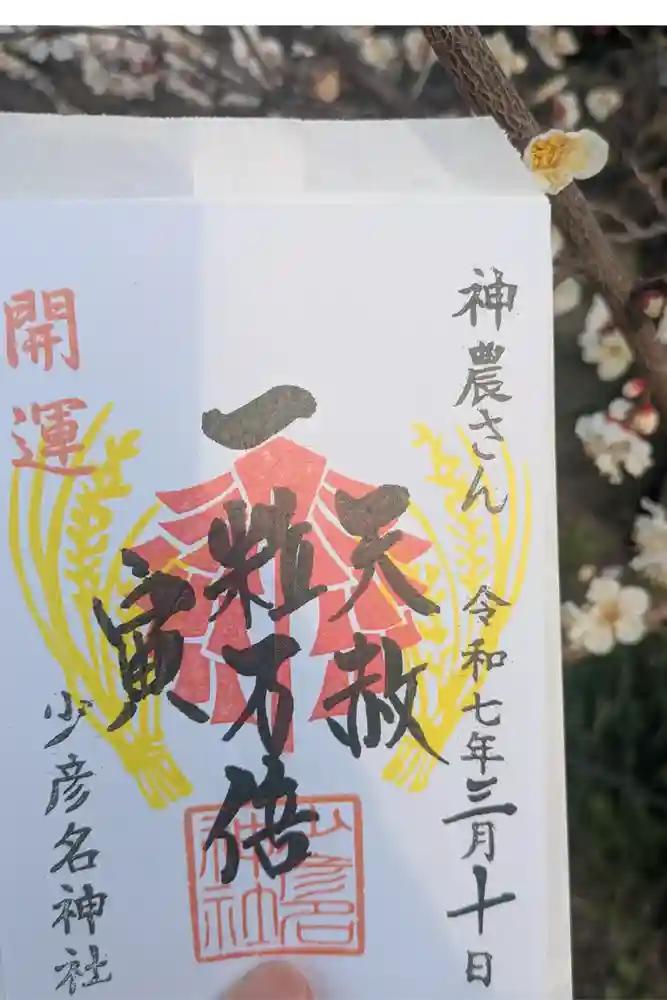 神農さん
令和七年三月十日
天赦
一粒万倍
寅
開運
少彦名神社
少彦名神社